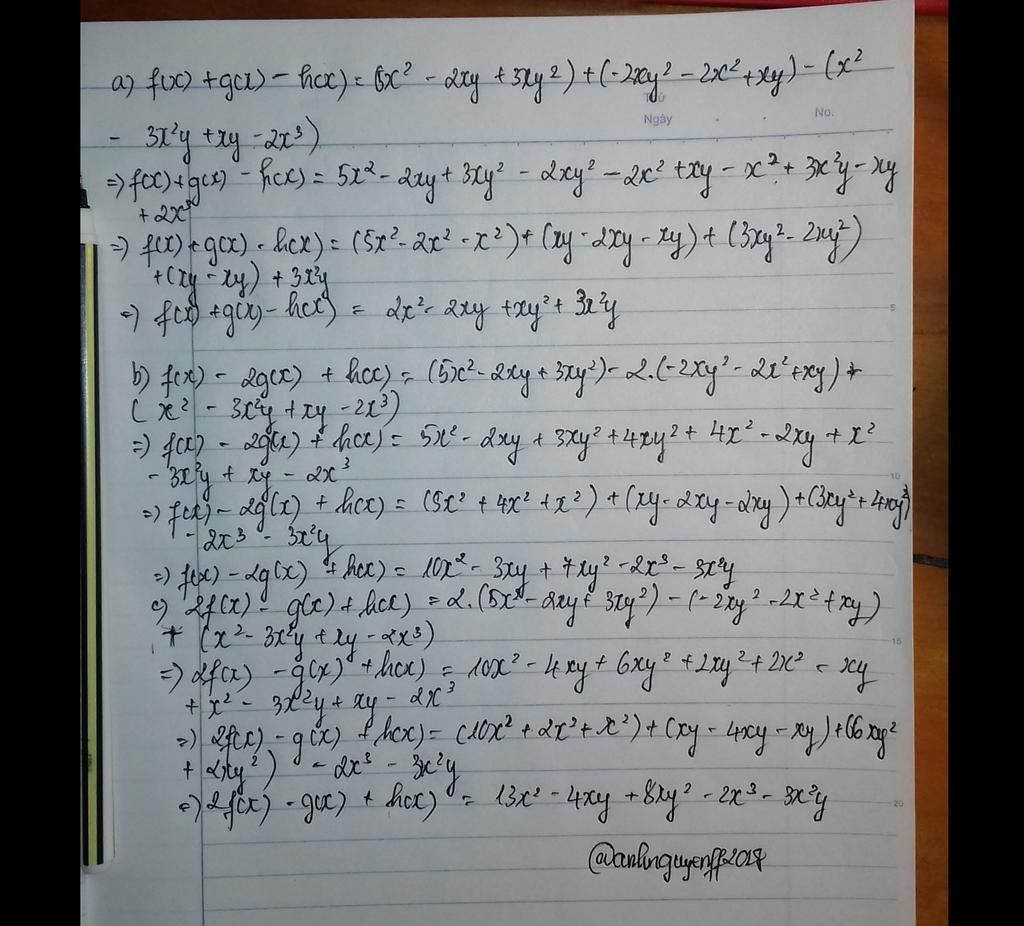 a) f(x) + g(x) - h(x) = (5x² - 2xy + 3xy²) + (-2xy² - 2x² + xy) - (x²
Thứ
Ngày No.
- 3x²y + xy - 2x³)
=> f(x) + g(x) - h(x) = 5x² - 2xy + 3xy² - 2xy² - 2x² + xy - x² + 3x²y - xy
+ 2x³
=> f(x) + g(x) - h(x) = (5x² - 2x² - x²) + (xy - 2xy - xy) + (3xy² - 2xy²)
+ (xy - xy) + 3x²y
=> f(x) + g(x) - h(x) = 2x² - 2xy + xy² + 3x²y
5
b) f(x) - 2g(x) + h(x) = (5x² - 2xy + 3xy²) - 2.(-2xy² - 2x² + xy) +
(x² - 3x²y + xy - 2x³)
=> f(x) - 2g(x) + h(x) = 5x² - 2xy + 3xy² + 4xy² + 4x² - 2xy + x²
- 3x²y + xy - 2x³
10
=> f(x) - 2g(x) + h(x) = (5x² + 4x² + x²) + (xy - 2xy - 2xy) + (3xy² + 4xy²)
- 2x³ - 3x²y
=> f(x) - 2g(x) + h(x) = 10x² - 3xy + 7xy² - 2x³ - 3x²y
c) 2f(x) - g(x) + h(x) = 2.(5x² - 2xy + 3xy²) - (-2xy² - 2x² + xy)
+ (x² - 3x²y + xy - 2x³)
15
=> 2f(x) - g(x) + h(x) = 10x² - 4xy + 6xy² + 2xy² + 2x² - xy
+ x² - 3x²y + xy - 2x³
=> 2f(x) - g(x) + h(x) = (10x² + 2x² + x²) + (xy - 4xy - xy) + (6xy²
+ 2xy²) - 2x³ - 3x²y
=> 2f(x) - g(x) + h(x) = 13x² - 4xy + 8xy² - 2x³ - 3x²y
20
@anhnguyenff2017